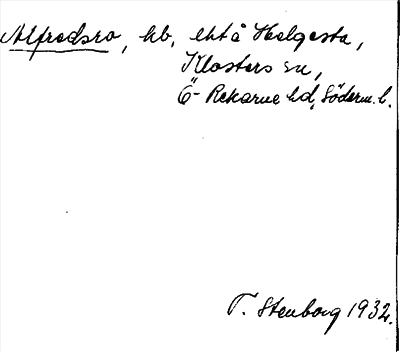 Alfredsro, hb, ehtå Helgesta,
Klosters sn,
Ö- Rekarne hd, Söderm. l.
T. Stenborg 1932.